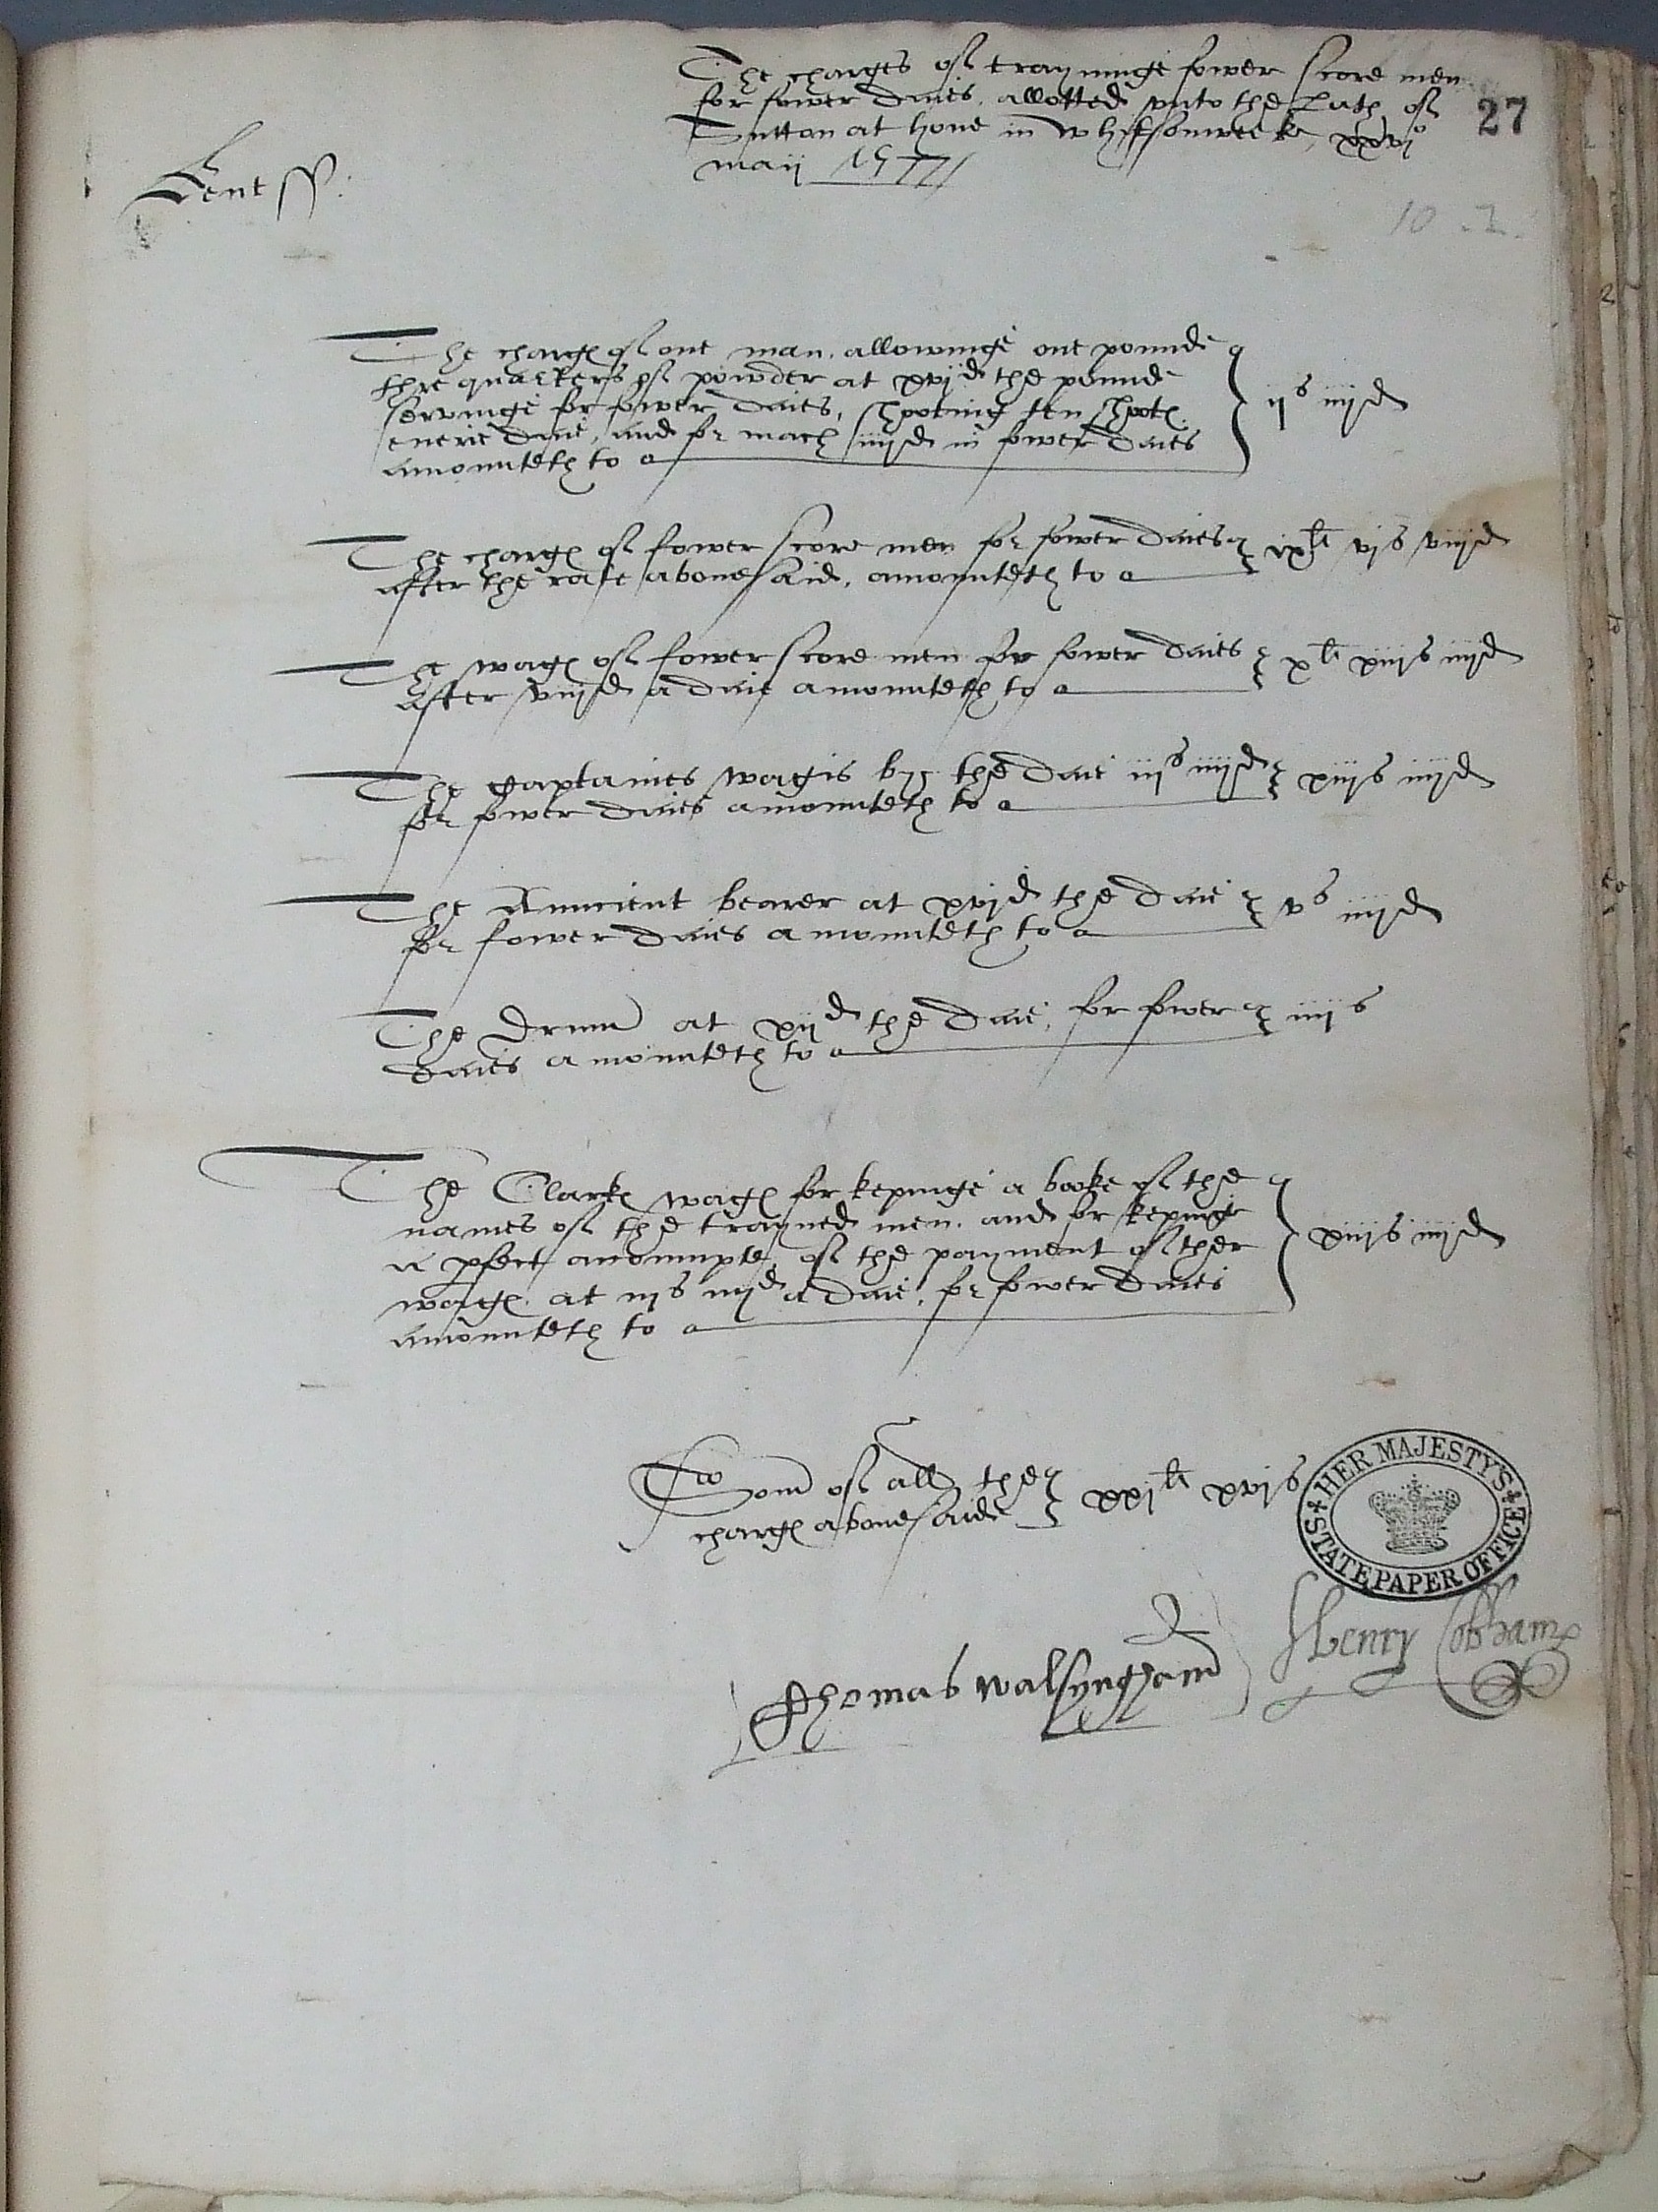 The charges of trayninge fower score men
for fower daies, allotted vnto the Lath of
Sutton at hone in whitsonweeke, xxvjo
maij 1577
27
Kent ss:
10 . 2.
The charg of one man, allowinge one pounde
thre quarters of powder at xvjd the pounde
servinge for fower daies, shooting ten shot
euerie daie, and for mach iiijd in fower daies
amounteth to
ijs iiijd
The charg of fower score men for fower daies
after the rate abovesaid, amounteth to
ixli vjs viijd
The wag of fower score men for fower daies
after viijd a daie amounteth to
xli xiijs iiijd
The Captaines wagis by the daie iijs iiijd
for fower daies amounteth to
xiijs iiijd
The Auncient bearer at xvjd the daie
for fower daies amounteth to
vs iiijd
The Drum at xijd the daie, for fower
daies amounteth to
iiijs
The Clark wag for kepinge a booke of the
names of the trayned men, and for kepinge
a pfect accoumpte, of the payment of ther
wag, at iijs iiijd a daie, for fower daies
amounteth to
xiijs iiijd
Som of all the
charg abovesaide
xxjli xvjs
HER MAJESTY'S
STATE PAPER OFFICE
Henry Cobham
Thomas Walsyngham